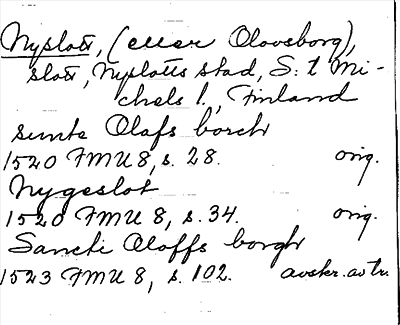 Nyslott, (eller Olovsborg),
slott, Nyslotts stad, S:t Mi-
chels l., Finland
sunte Olafs borch
1520 FMU 8, s. 28. orig.
Nygeslot
1520 FMU 8, s. 34. orig.
Sancti Oloffs borgh
1523 FMU 8, s. 102. avskr. av tr.